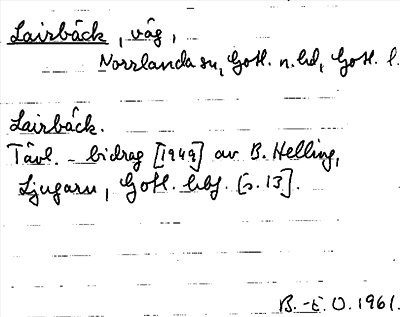 Lairbäck, väg,
Norrlanda sn, Gotl. n. hd, Gotl. l.
Lairbäck.
Tävl.-bidrag [1949] av B. Helling,
Ljugarn, Gotl. hbf. [s. 13].
B.-E. O. 1961.